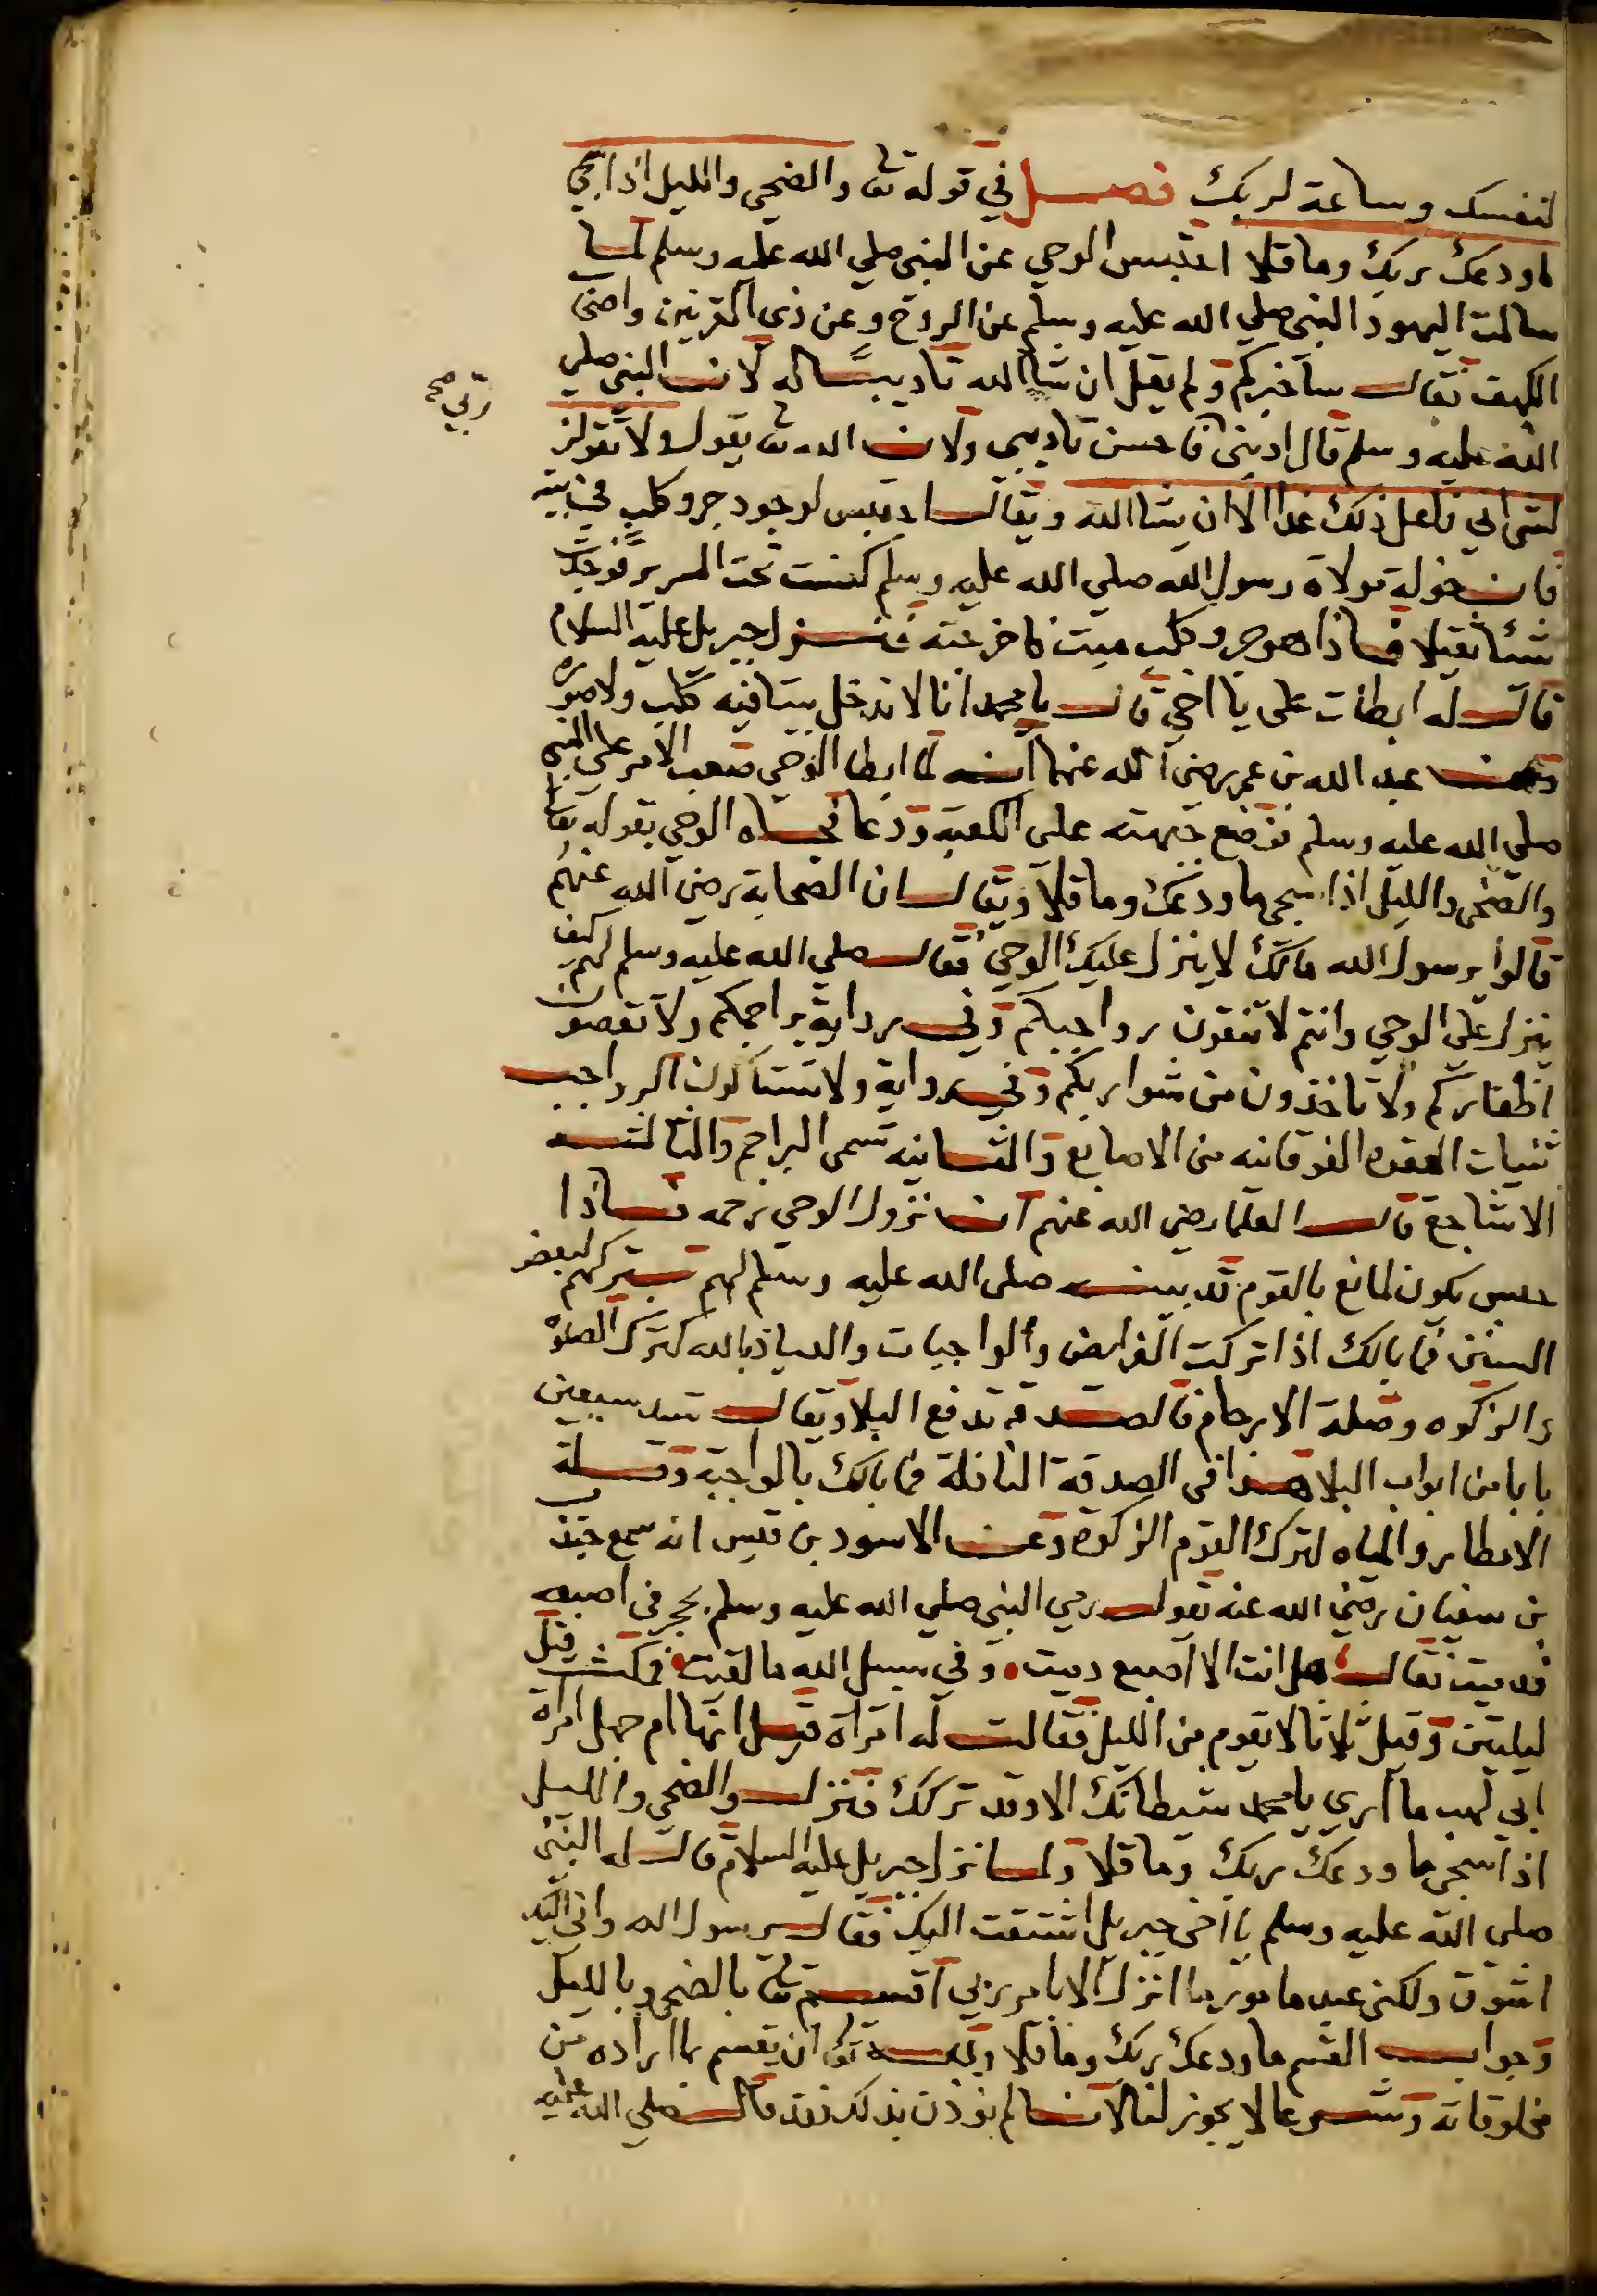 لنفسك وساعة لربك فصل في قوله تعا والضحي والليل اذا سجي
ما ودعك ربك وما قلا احتبس الوحي عن النبي صلي الله عليه وسلم لما
سالت اليهود النبي صلي الله عليه وسلم عن الروح وعن ذي القرنين واصحاب
الكهف فقال ساخبركم ولم يقل ان شا الله تاديبا له لان النبي صلي
الله عليه وسلم قال ادبني فاحسن تاديبي ولان الله تعا يقول ولا تقولن
ربي صح
لشي اني فاعل ذلك غدا الا ان يشا الله ويقال احتبس لوجود جرو كلب في بيته
قالت خولة مولاة رسول الله صلي الله عليه وسلم كنست تحت السرير فوجدت
شئا ثقيلا فاذا هو جرو كلب ميت فاخرجته فنزل جبريل عليه السلام
قال له ابطات علي يا اخي قال يا محمد انا لا ندخل بيتا فيه كلب ولا صوره
وعن عبد الله بن عمر رضي الله عنهما انه لما ابطا الوحي صعب الامر علي النبي
صلي الله عليه وسلم فوضع جبهته علي الكعبة ودعا فجاه الوحي بقوله تعا
والضحي والليل اذا سجي ما ودعك وما قلا ويقال ان الصحابة رضي الله عنهم
قالوا يرسول الله مالك لا ينزل عليك الوحي فقال صلي الله عليه وسلم لهم كيف
ينزل علي الوحي وانتم لا تنقون رواجبكم وفي رواية براجمكم ولا تقصون
اظفاركم ولا تاخذون من شواربكم وفي رواية ولا تستاكون الرواجب
ثنيات العقده الفوقانيه من الاصابع والثانيه تسمي البراجم والثالثه
الاشاجع قال العلما رضي الله عنهم ان نزول الوحي رحمه فاذا
حبس يكون لمانع بالقوم قد بينه صلي الله عليه وسلم لهم بتركهم لبعض
السنن فما بالك اذا تركت الفرايض والواجبات والعياذ بالله كترك الصلوة
والزكوه وصلة الارحام فالصدقه تدفع البلا ويقال تسد سبعين
بابا من ابواب البلا هذا في الصدقة النافلة فما بالك بالواجبة وقلة
الامطار والمياه لترك القوم الزكوة وعن الاسود بن قيس انه سمع جندب
بن سفيان رضي الله عنه يقول رمي النبي صلي الله عليه وسلم بحجر في اصبعه
فدميت فقال هل انت الا اصبع دميت وفي سبيل الله ما لقيت فمكث قيل
ليلتين وقيل ثلاثا لا يقوم من الليل فقالت له امراة قيل انها ام جميل امراة
ابي لهب ما اري يا محمد شيطانك الا وقد تركك فنزل والضحي والليل
اذا سجي ما ودعك ربك وما قلا ولما نزل جبريل عليه السلام قال له النبي
صلي الله عليه وسلم يا اخي جبريل اشتقت اليك فقال يرسول الله واني اليك
اشوق ولكني عبد مامور ما انزل الا بامر ربي اقسم تعا بالضحي وبالليل
وجواب القسم ما ودعك ربك وما قلا وله تعا ان يقسم بما اراده من
مخلوقاته وشرعا لا يجوز لنا لانا لم نؤذن بذلك فقد قال صلي الله عليه